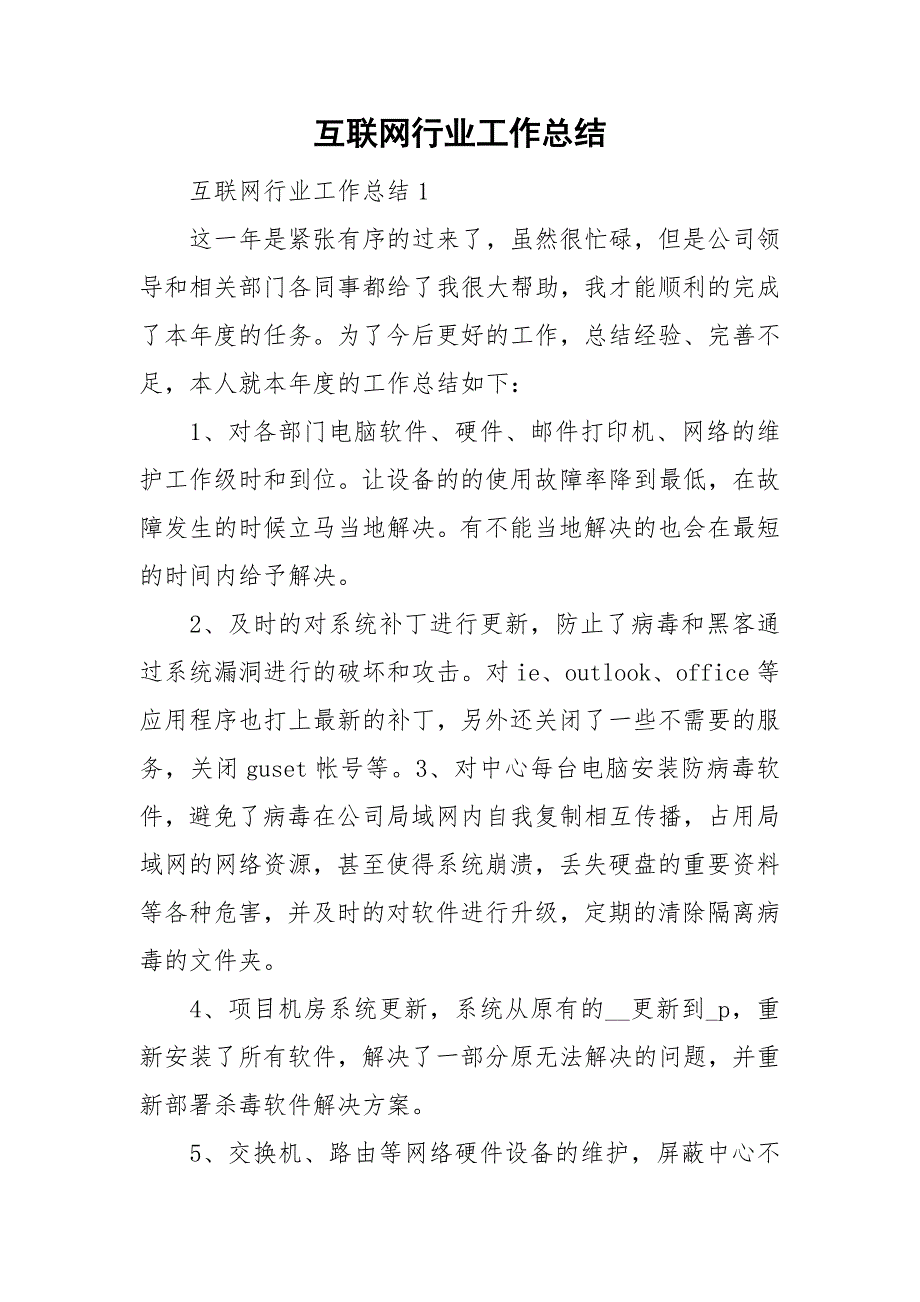 互联网行业工作总结
互联网行业工作总结 1
这一年是紧张有序的过来了，虽然很忙碌，但是公司领
导和相关部门各同事都给了我很大帮助，我才能顺利的完成
了本年度的任务。为了今后更好的工作，总结经验、完善不
足，本人就本年度的工作总结如下：
1、对各部门电脑软件、硬件、邮件打印机、网络的维
护工作级时和到位。让设备的的使用故障率降到最低，在故
障发生的时候立马当地解决。有不能当地解决的也会在最短
的时间内给予解决。
2、及时的对系统补丁进行更新，防止了病毒和黑客通
过系统漏洞进行的破坏和攻击。对 ie、outlook、office 等
应用程序也打上最新的补丁，另外还关闭了一些不需要的服
务，关闭 guset 帐号等。3、对中心每台电脑安装防病毒软
件，避免了病毒在公司局域网内自我复制相互传播，占用局
域网的网络资源，甚至使得系统崩溃，丢失硬盘的重要资料
等各种危害，并及时的对软件进行升级，定期的清除隔离病
毒的文件夹。
4、项目机房系统更新，系统从原有的__更新到_p，重
新安装了所有软件，解决了一部分原无法解决的问题，并重
新部署杀毒软件解决方案。
5、交换机、路由等网络硬件设备的维护，屏蔽中心不